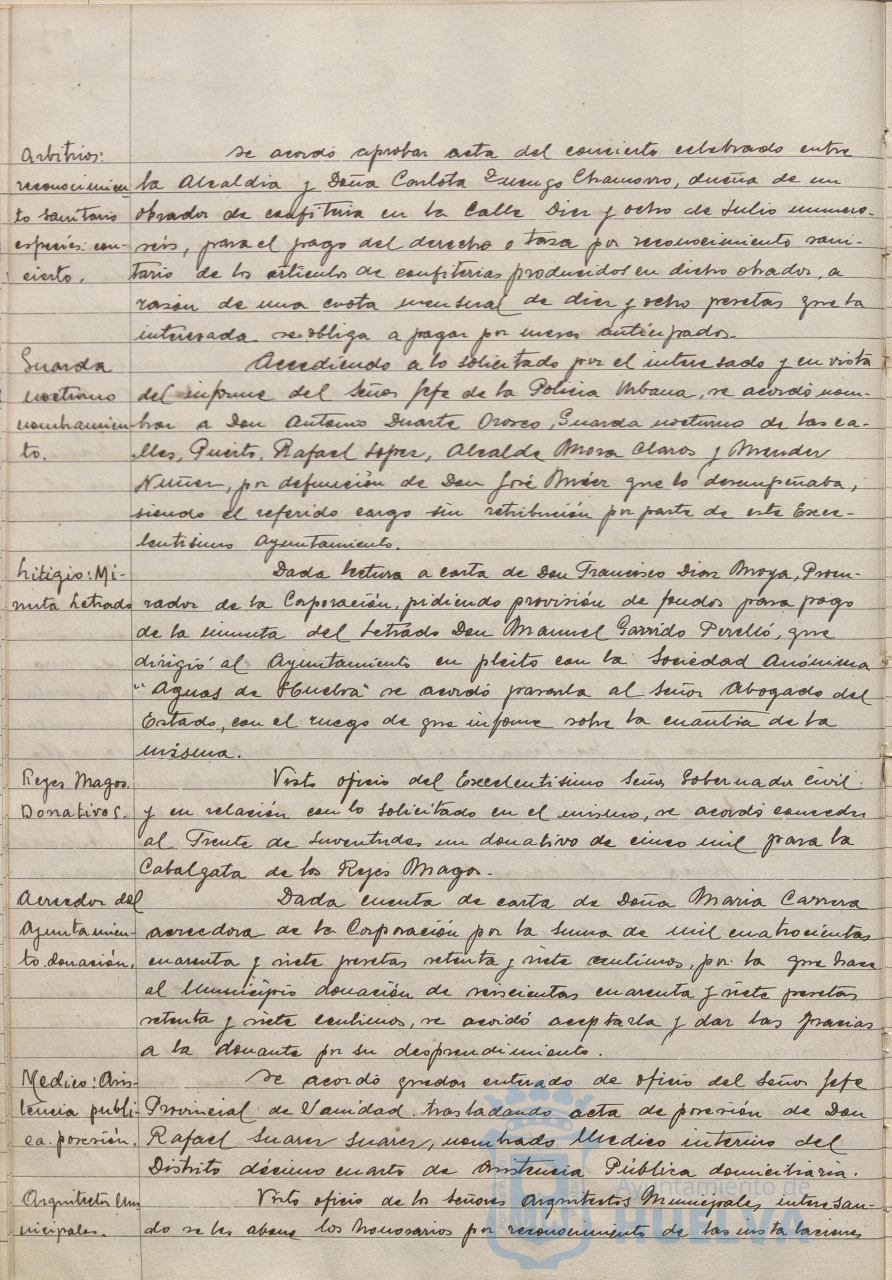 Arbitrios:
reconocimien-
to sanitario
especies: con-
cierto.
Se acordó aprobar acta del concierto celebrado entre
la Alcaldia y Doña Carlota Chamorro, dueña de un
obrador de confiteria en la Calle Diez y ocho de Julio numero
seis, para el pago del derecho o tasa por reconocimiento sani-
tario de los articulos de confiterias producidos en dicho obrador, a
razón de una cuota mensual de diez y ocho pesetas que la
interesada se obliga a pagar por meses anticipados.
Guarda
nocturno
nombramien-
to.
Accediendo a lo solicitado por el interesado y en vista
del informe del Señor Jefe de la Policia Urbana, se acordó nom-
brar a Don Antonio Duarte Orosco, Guarda nocturno de las ca-
lles, Puerto, Rafael Lopez, Alcalde Mora Claros y Mendez
Nuñez, por defunción de Don José que lo desempeñaba,
siendo el referido cargo sin retribución por parte de este Exce-
lentisimo Ayuntamiento.
Litigio: Mi-
nuta Letrado
Dada lectura a carta de Don Francisco Diaz Moya, Procu-
rador de la Corporación, pidiendo provisión de fondos para pago
de la minuta del Letrado Don Manuel Garrido Perelló, que
dirigió al Ayuntamiento en pleito con la Sociedad Anónima
"Aguas de Huelva" se acordó pasarla al Señor Abogado del
Estado, con el ruego de que informe sobre la cuantia de la
misma.
Reyes Magos.
Donativos.
Visto oficio del Excelentisimo Señor Gobernador Civil
y en relación con lo solicitado en el mismo, se acordó conceder
al Frente de Juventudes un donativo de cinco mil para la
Cabalgata de los Reyes Magos.
Acreedor del
Ayuntamien-
to. donación.
Dada cuenta de carta de Doña Maria Carrera
acreedora de la Corporación por la suma de mil cuatrocientas
cuarenta y siete pesetas setenta y siete centimos, por la que hace
al Municipio donación de seiscientas cuarenta y siete pesetas
setenta y siete centimos, se acordó aceptarla y dar las gracias
a la donante por su desprendimiento.
Medico: Asis-
tencia públi-
ca. posesión.
Se acordó quedar enterado de oficio del Señor Jefe
Provincial de Sanidad trasladando acta de posesión de Don
Rafael Suarez Suarez, nombrado Medico interino del
Distrito décimo cuarto de Asistencia Pública domiciliaria.
Arquitectos Mu-
nicipales.
Visto oficio de los Señores Arquitectos Municipales interesan-
do se les abone los honorarios por reconocimiento de las instalaciones
Ayuntamiento de
HUELVA